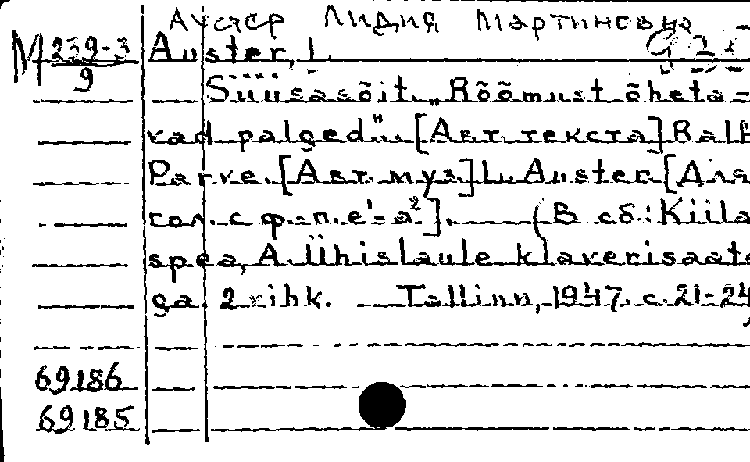 Аустер Лидия Мартиновна
М 239-3/9 Auster, L.
Süusasõit. „Rõõmust õheta=
vad palged"... [Авт. текста] Ralf
Parve. [Авт. муз.] L. Auster. [Для
гол. с ф.-п. e¹-a²]. (В сб.: Kiila
spea, A. Ühislaule klaverisaate
ga. 2 vihk. Tallinn, 1947. с. 21-24
69186
69185